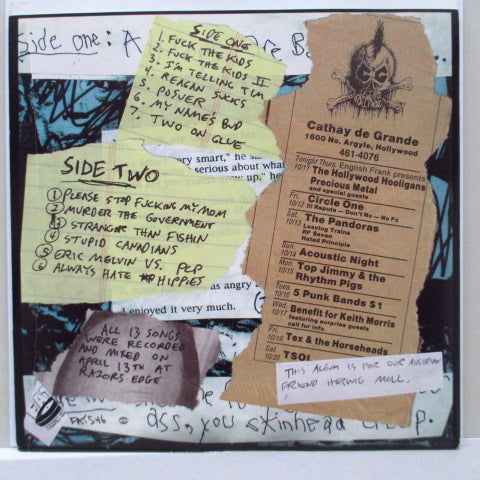 Side one: A
SIDE ONE
1. FUCK THE KIDS
2. FUCK THE KIDS II
3. I'M TELLING TIM
4. REAGAN SUCKS
5. POSUER
6. MY NAME'S BUD
7. TWO ON GLUE
very smart," he sa
serious about what
up," he
SIDE TWO
① PLEASE STOP FUCKING MY MOM
② MURDER THE GOVERNMENT
③ STRANGER THAN FISHIN
④ STUPID CANADIANS
⑤ ERIC MELVIN VS. PCP
⑥ ALWAYS HATE HIPPIES
as angry
enjoyed it very much.
ALL 13 SONGS
WERE RECORDED
AND MIXED ON
APRIL 13TH AT
RAZORS EDGE
FAT 546
ass, you skinhead
Cathay de Grande
1600 No. Argyle, Hollywood
461-4076
Tonight Thurs. English Frank presents
10/11 The Hollywood Hooligans
Precious Metal
and special guests
Fri. 10/12 Circle One
Ill Repute — Don't No — No Fx
Sat. 10/13 The Pandoras
Leaving Trains
RF Seven
Hated Principle
Sun. 10/14 Acoustic Night
Mon. 10/15 Top Jimmy & the
Rhythm Pigs
Tues. 10/16 5 Punk Bands $1
Wed. 10/17 Benefit for Keith Morris
featuring surprise guests
call for info.
Fri. 10/19 Tex & the Horseheads
Sat. 10/20 TSOL
THIS ALBUM IS FOR OUR AUSTRIAN
FRIEND HERWIG MOLL.